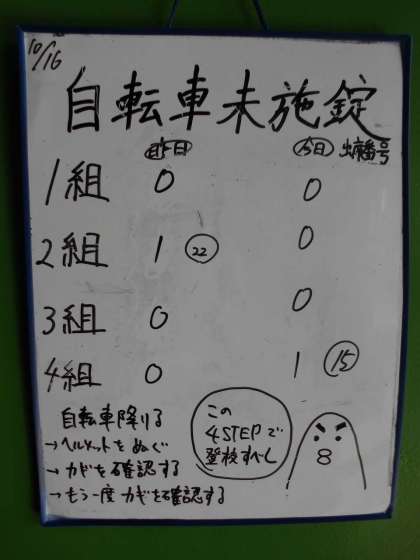 10/16
自転車未施錠
昨日 今日 出席番号
1組 0 0
2組 1 22 0
3組 0 0
4組 0 1 15
自転車降りる
→ヘルメットをぬぐ
→カギを確認する
→もう一度カギを確認する
この
4STEPで
登校すべし